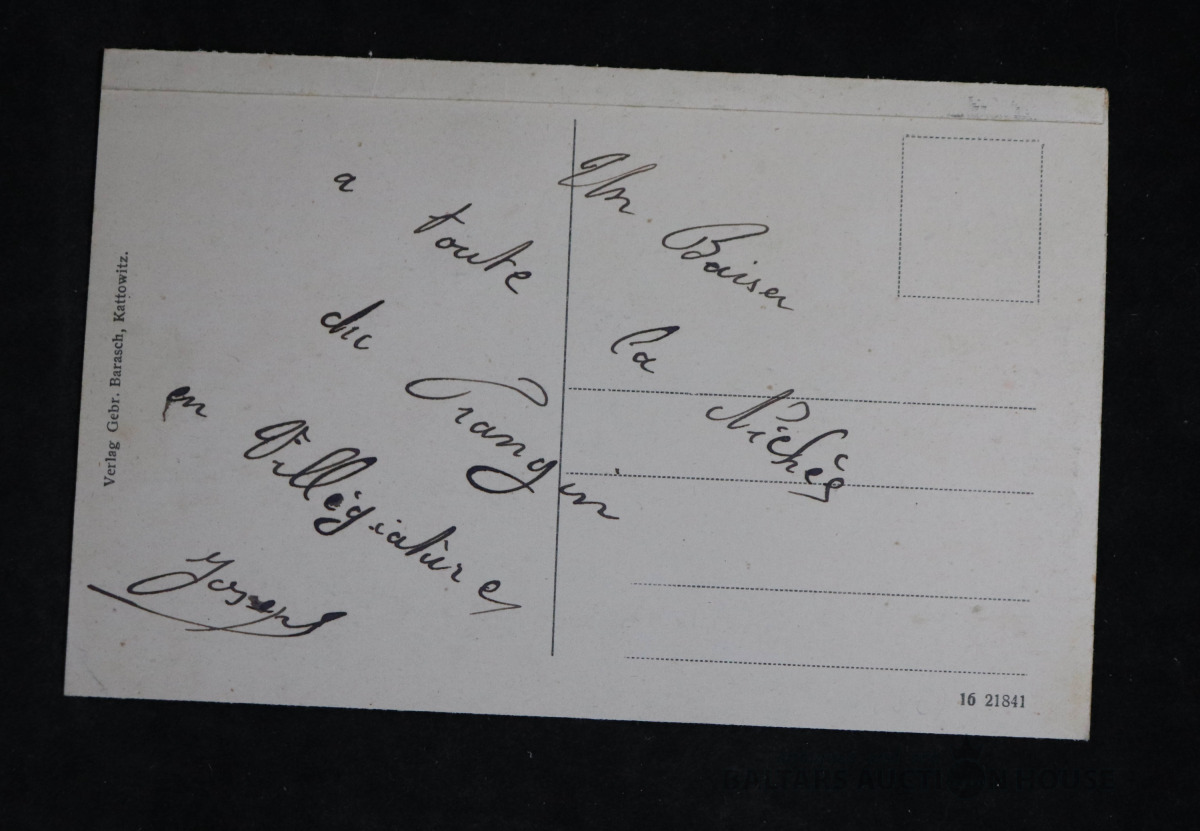 Un Baiser
a toute la Nichée
du Trangin
en Villégiature
Joseph
Verlag Gebr. Barasch, Kattowitz.
16 21841
BALTARS AUCTION HOUSE